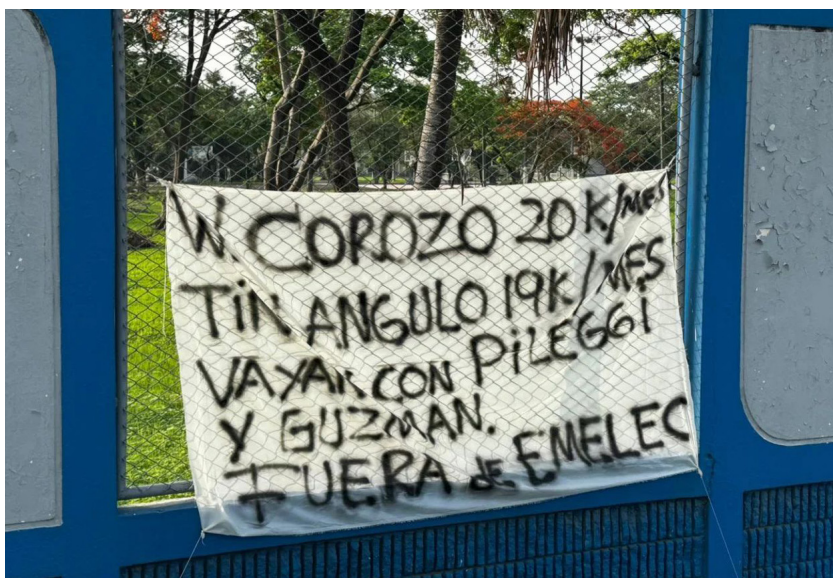 W. COROZO 20K/MES
TIN ANGULO 19K/MES
VAYAN CON PiLEGGi
Y GUZMAN.
FUERA de EMELEC